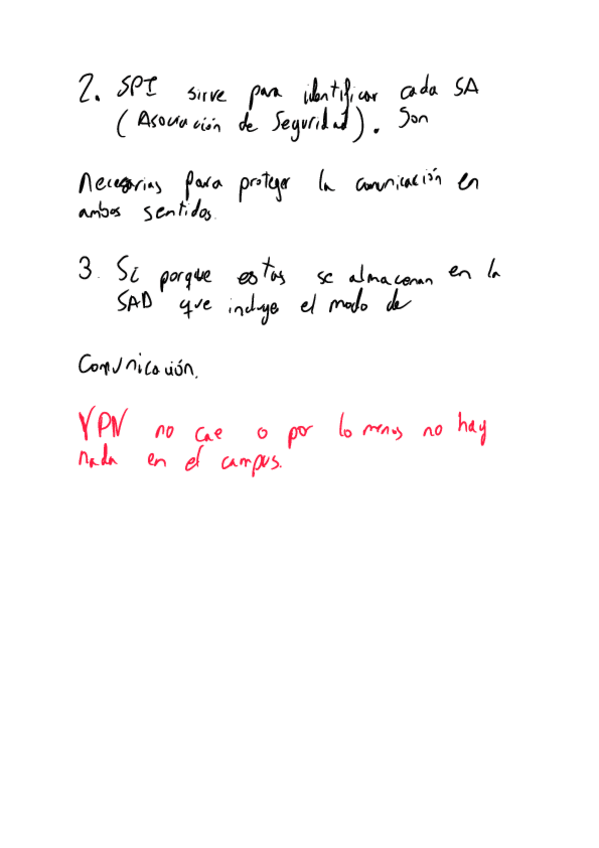 2. SPI sirve para identificar cada SA
(Asociación de Seguridad). Son
Necesarias para proteger la comunicación en
ambos sentidos.
3. Si porque estas se almacenan en la
SAD que incluye el modo de
Comunicación.
VPN no cae o por lo menos no hay
nada en el campus.